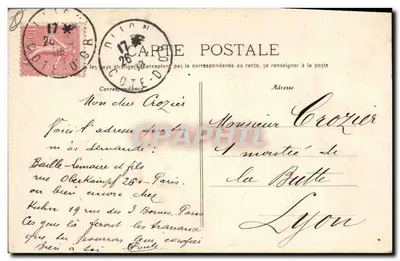 DIJON
17 *
26
COTE-D'OR
DIJON
17 *
26
COTE-D'OR
CARTE POSTALE
pays étrangers n'acceptent pas la correspondance au recto, se renseigner à la poste
Correspondance
Adresse
Mon cher Crozier
Voici l'adresse que tu
m'as demandé:
Baille-Lemaire et fils
rue Oberkampf 26 - Paris.
ou bien encore chez
Kuhn 19 rue des 3 Bornes. Paris
Ces que là feront les travaux
que tu pourras leur confier
Bien à toi
Monsieur Crozier
1 montée de
la Butte
Lyon
PHARTIL